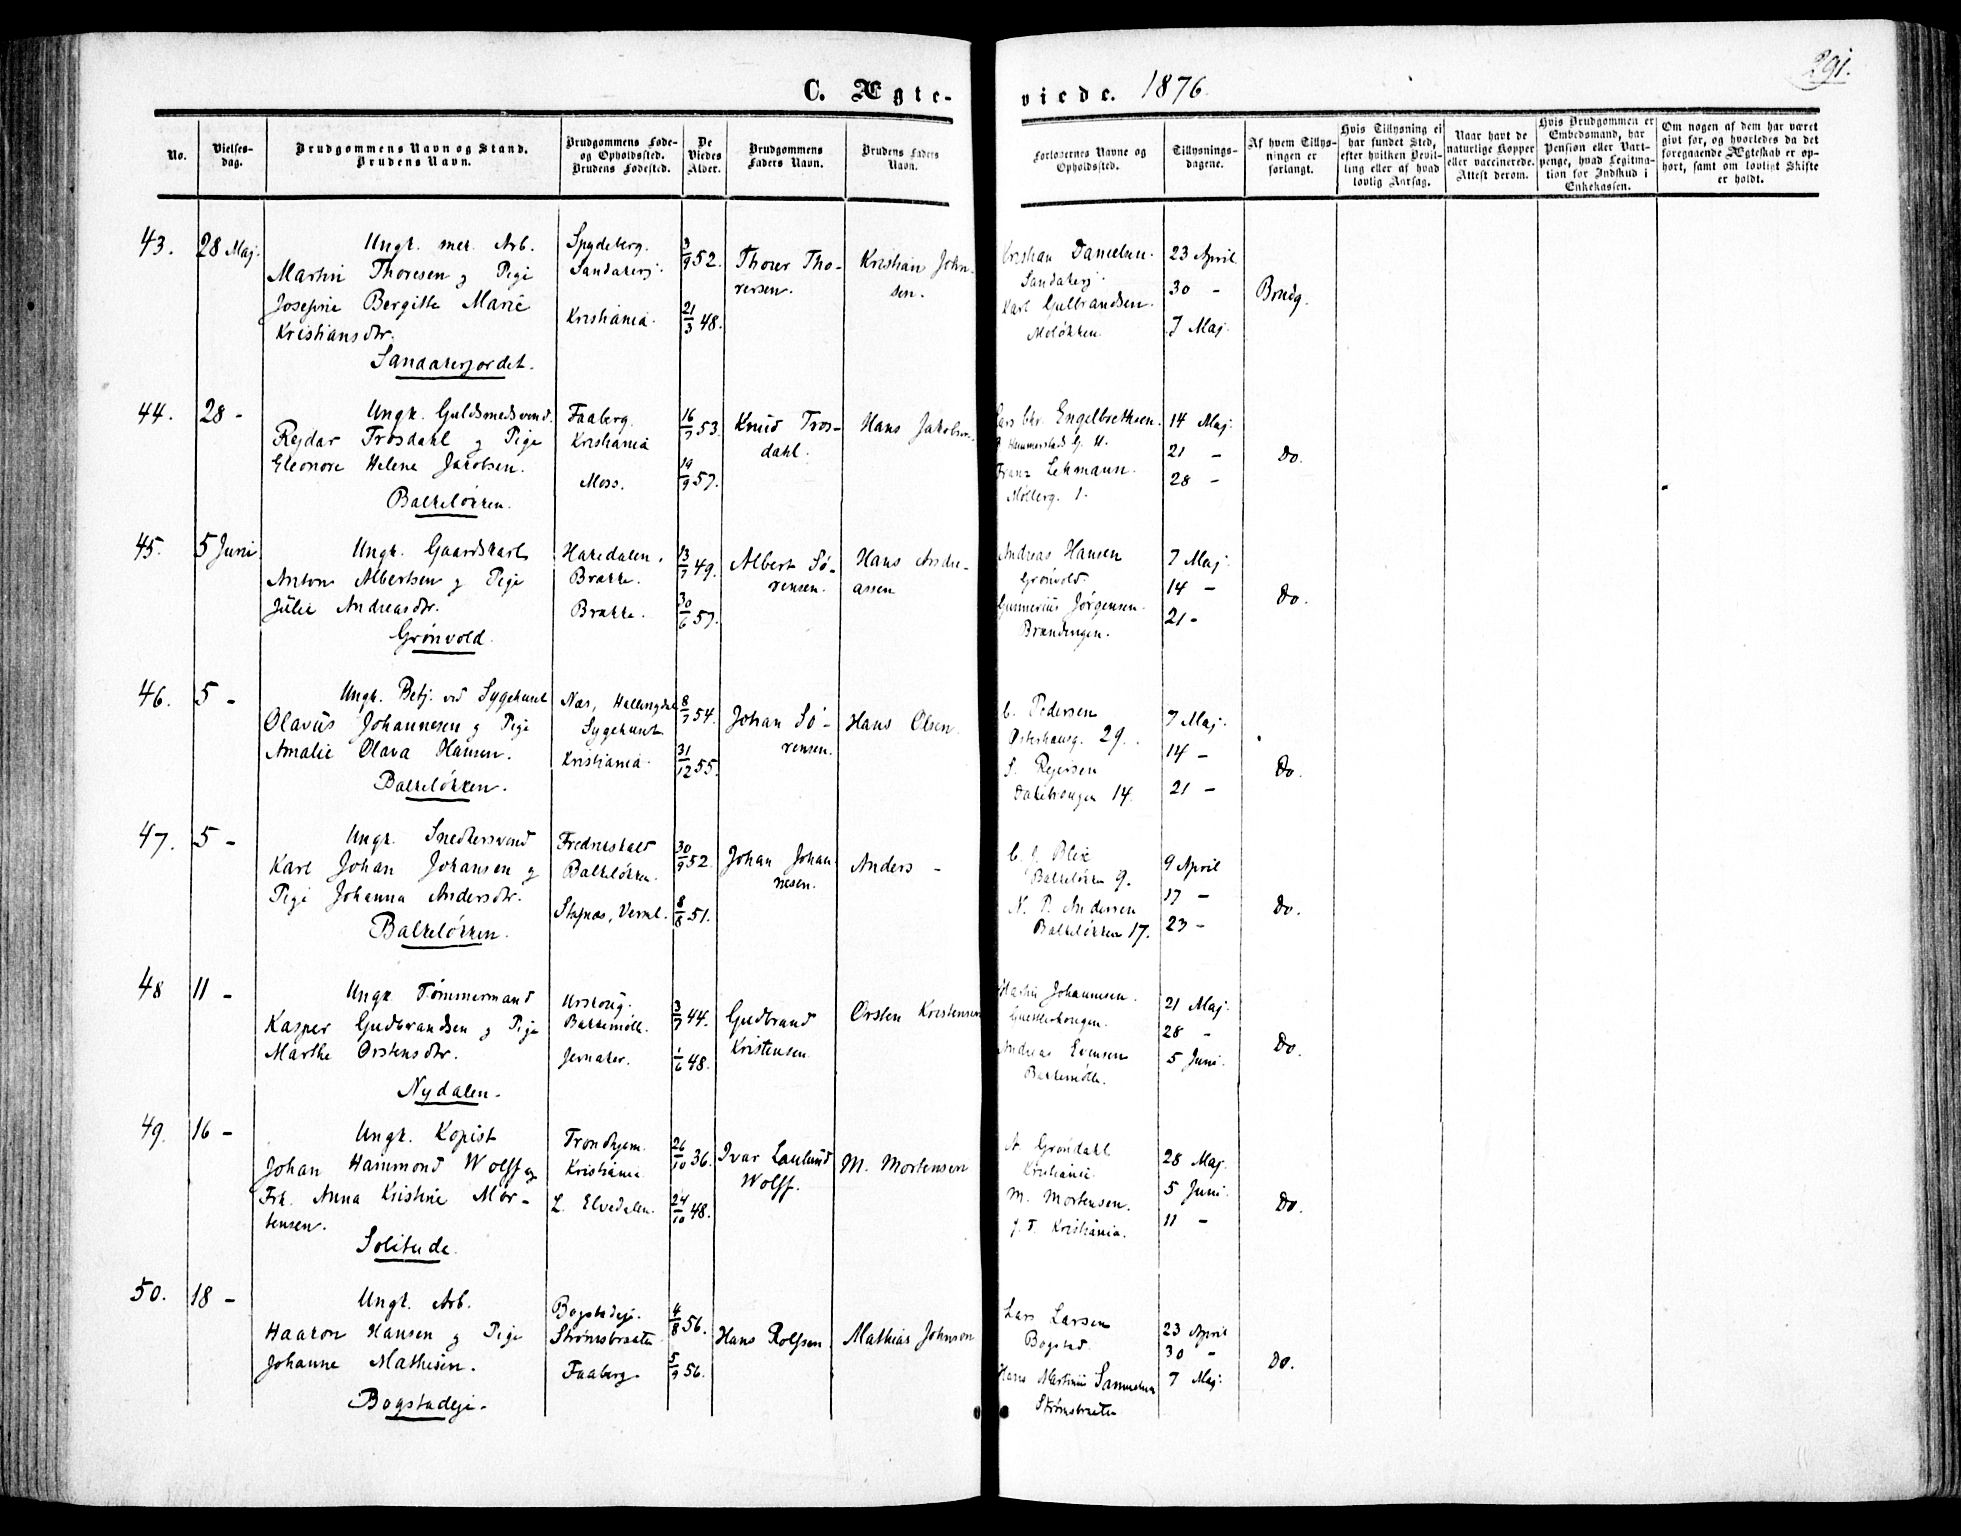 291.
C. Ægteviede. 1876
No.
Vielsesdag.
Brudgommens Navn og Stand.
Brudens Navn.
Brudgommens Føde-
og Opholdssted.
Brudens Fødested.
De
Viedes
Alder.
Brudgommens
Faders Navn.
Brudens Faders
Navn.
Forlovernes Navne og
Opholdssted.
Tillysnings-
dagene.
Af hvem Tillys-
ningen er
forlangt.
Hvis Tillysning ei
har fundet Sted,
efter hvilken Bevil-
ling eller af hvad
lovlig Aarsag.
Naar havt de
naturlige Kopper
eller vaccinerede.
Attest derom.
Hvis Brudgommen er
Embedsmand, har
Pension eller Vart-
penge, hvad Legitima-
tion for Indskud i
Enkekassen.
Om nogen af dem har været
gift før, og hvorledes da det
foregaaende Ægteskab er op-
hørt, samt om lovligt Skifte
er holdt.
43. 28 Maj.
Ungk. Arb.
Martin Thoresen og Pige
Josefine Bergitte Marie
Kristiansdtr.
Spydeberg.
Kristiania.
3/9 52.
21/3 48.
Thorer Tho-
rersen.
Kristian John-
sen.
Kristian Danielsen.
Karl Gulbrandsen.
23 April
30 -
7 Maj.
Brudg.
44. 28 -
Ungk. Guldsmedsvend
Rejdar Trosdahl og Pige
Eleonore Helene Jacobsen.
Balkeløkken.
Faaberg.
Kristiania
Moss.
16/7 53.
19/9 57.
Knud Tros-
dahl.
Hans Jakobsen.
Lars Chr. Engelbrethsen.
Franz Lehmann.
Møllerg. 1.
14 Maj.
21 -
28 -
Do.
45. 5 Juni
Ungk. Gaardskarl
Anton Albertsen og Pige
Julie Andreasdtr.
Grønvold.
Hakedalen.
Brække.
Brække.
13/7 49.
30/6 57.
Albert Sø-
rensen.
Hans Andre-
assen
Andreas Hansen
Grønvold.
Gunnerius Jørgensen.
Brændengen.
7 Maj.
14 -
21 -
Do.
46. 5 -
Ungk. Betj. ved Sygehuset
Olavus Johannesen og Pige
Amalie Olava Hansen.
Balkeløkken.
Næs, Hallingdal
Sygehuset
Kristiania.
8/7 54.
31/12 55.
Johan Sø-
rensen.
Hans Olsen.
C. Pedersen
Østerhausg. 29.
S. Rejersen
14.
7 Maj.
14 -
21 -
Do.
47. 5 -
Ungk. Snedkersvend
Karl Johan Johansen og
Pige Johanna Andersdtr.
Balkeløkken.
Fredrikshald
Balkeløkken.
30/9 52.
8/8 51.
Johan Johan-
nesen.
Anders -
C. J. Blix
Balkeløkken 9.
N. P. Andersen
Balkeløkken 17.
9 April
17 -
23 -
Do.
48 11 -
Ungk. Tømmermand
Kasper Gudbrandsen og Pige
Marthe Orstensdtr.
Nydalen.
Urskoug.
Bakkemøll.
Jevnaker.
3/7 44.
1/6 48.
Gudbrand
Kristensen
Orsten Kristensen
Martin Johannesen.
Andreas Evensen
Bakkemøll.
21 Maj.
28 -
5 Juni.
Do.
49. 16 -
Ungk. Kopist
Johan Hammond Wolff og
Frk. Anna Kristine Mor-
tensen.
Solitude.
Trondhjem.
Kristiania
L. Elvedalen.
26/10 36.
24/10 48.
Ivar Laulund
Wolff.
M. Mortensen
A. Grøndahl
Kristiania.
M. Mortensen.
Kristiania.
28 Maj.
5 Juni.
11 -
Do.
50. 18 -
Ungk. Arb.
Haakon Hansen og Pige
Johanne Mathisen.
Bogstadeje.
Bogstadeje.
Strømsbraaten
Faaberg.
4/8 56.
5/9 56.
Hans Rolfsen
Mathias Johnsen
Lars Larsen
Bogstad.
Hans Martinus Samuelsen
Strømsbraaten
23 April
30 -
7 Maj.
Do.